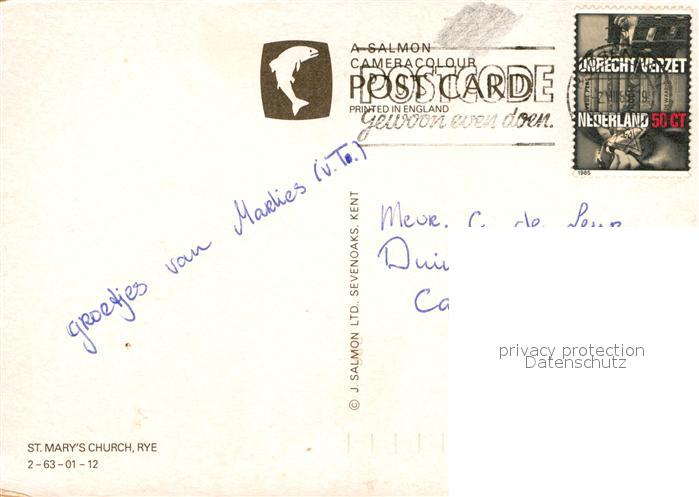 A SALMON
CAMERACOLOUR
POST CARD
PRINTED IN ENGLAND
POSTCODE
gewoon even doen.
ONRECHT/VERZET
NEDERLAND 50 CT
1985
groetjes van Marlies (v. To.)
© J. SALMON LTD. SEVENOAKS. KENT
Mevr. C. de Leur
Dui
Ca
privacy protection
Datenschutz
ST. MARY'S CHURCH, RYE
2-63-01-12